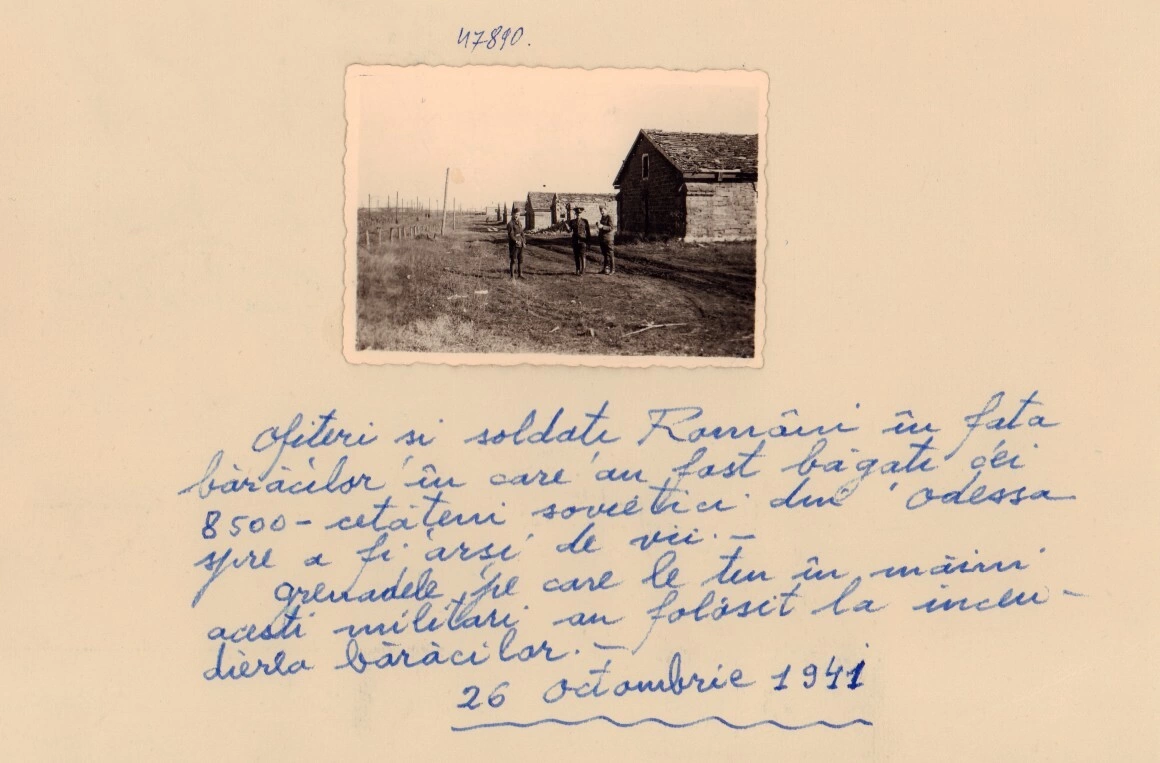 47890.
Ofiteri si soldati Români în fata
bărăcilor în care au fost băgati cei
8500 - cetăteni sovietici din Odessa
spre a fi arsi de vii. -
grenadele pe care le tin în mâini
acesti militari au folosit la incen-
dierea bărăcilor. -
26 Octombrie 1941